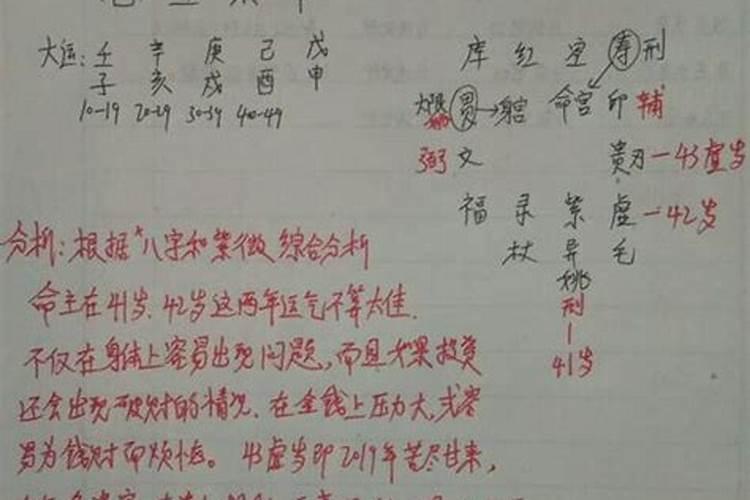 大运: 壬 辛 庚 己 戊
子 亥 戌 酉 申
10-19 20-29 30-39 40-49
库 红 空 寿 刑
大限 贯→ 命宫 印 辅
弼 文 贵刃—43虚岁
福 录 紫 虚—42岁
杖 异 毛
姚
刑
41岁
分析:根据“八字和紫微综合分析
命主在41岁、42岁这两年运气不算太佳.
不仅在身体上容易出现问题,而且如果投资
还会出现破财的情况.在金钱上压力大,或容
易为钱财而烦恼。43虚岁即2019年苦尽甘来,